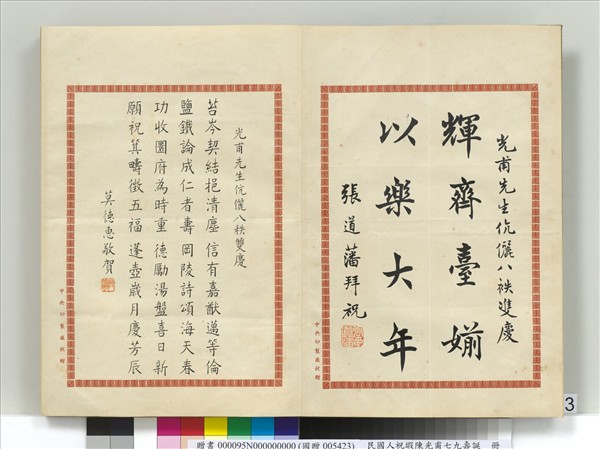 光甫先生伉儷八袟雙慶
輝齊臺媊
以樂大年
張道藩拜祝
中央印製廠
光甫先生伉儷八秩雙慶
苔岑契結挹清塵 信有嘉猷邁等倫
鹽鐵論成仁者壽 岡陵詩頌海天春
功收圜府為時重 德勵湯盤喜日新
願祝箕疇徵五福 蓬壺歲月慶芳辰
莫德惠敬賀
中央印製廠
3
贈書 000095N000000000 (國贈 005423) 民國人祝嘏陳光甫七九壽誕 冊